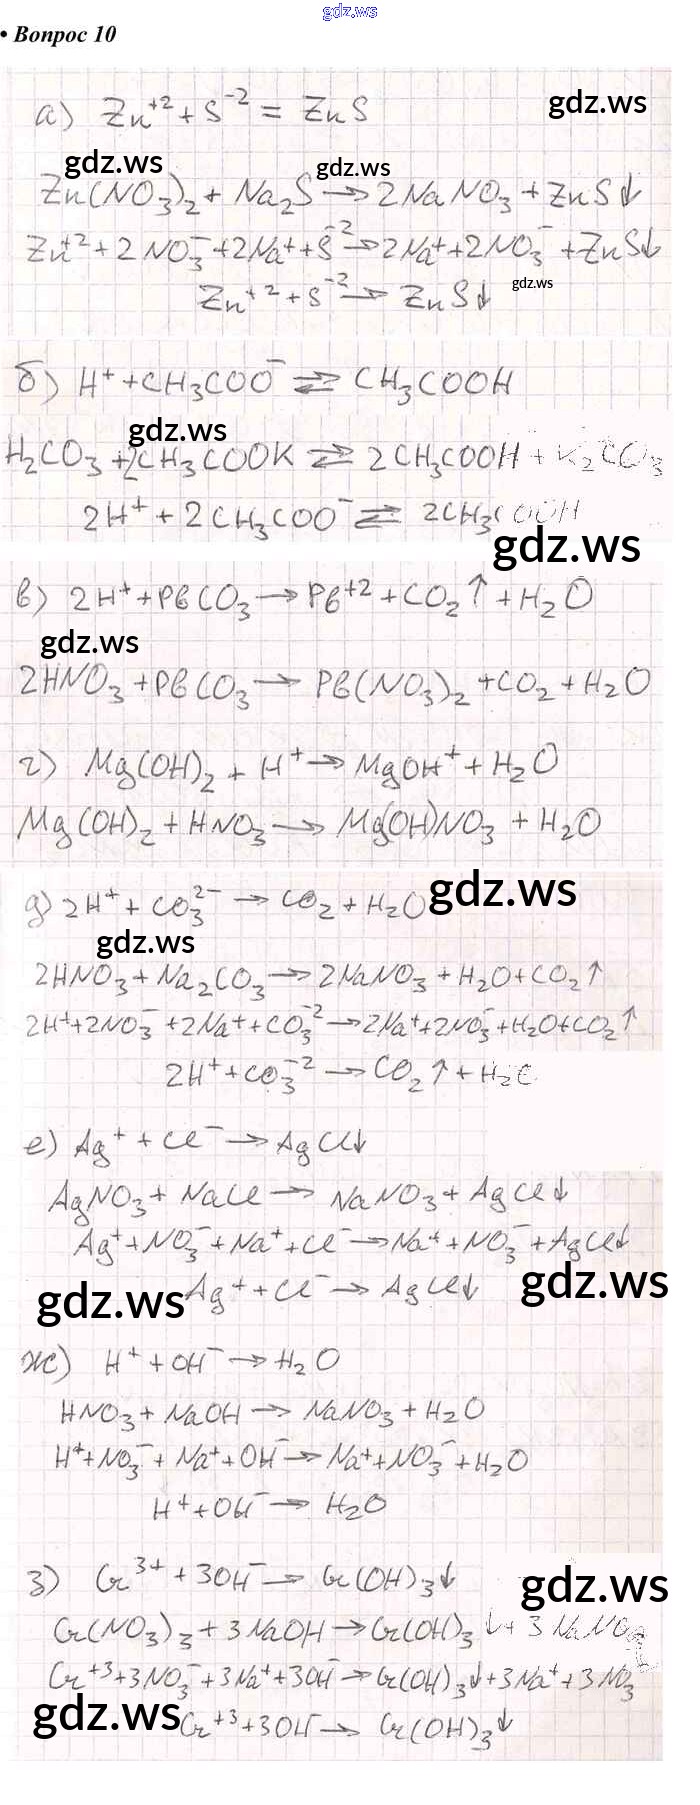 gdz.ws
• Вопрос 10
а) Zn⁺² + S⁻² = ZnS
gdz.ws
gdz.ws
gdz.ws
Zn(NO₃)₂ + Na₂S → 2NaNO₃ + ZnS↓
Zn⁺² + 2NO₃⁻ + 2Na⁺ + S⁻² → 2Na⁺ + 2NO₃⁻ + ZnS↓
Zn⁺² + S⁻² → ZnS↓
gdz.ws
б) H⁺ + CH₃COO⁻ ⇄ CH₃COOH
gdz.ws
H₂CO₃ + 2CH₃COOK ⇄ 2CH₃COOH + K₂CO₃
2H⁺ + 2CH₃COO⁻ ⇄ 2CH₃COOH
gdz.ws
в) 2H⁺ + PbCO₃ → Pb⁺² + CO₂↑ + H₂O
gdz.ws
2HNO₃ + PbCO₃ → Pb(NO₃)₂ + CO₂ + H₂O
г) Mg(OH)₂ + H⁺ → MgOH⁺ + H₂O
Mg(OH)₂ + HNO₃ → Mg(OH)NO₃ + H₂O
д) 2H⁺ + CO₃²⁻ → CO₂ + H₂O
gdz.ws
gdz.ws
2HNO₃ + Na₂CO₃ → 2NaNO₃ + H₂O + CO₂↑
2H⁺ + 2NO₃⁻ + 2Na⁺ + CO₃⁻² → 2Na⁺ + 2NO₃⁻ + H₂O + CO₂↑
2H⁺ + CO₃⁻² → CO₂↑ + H₂O
е) Ag⁺ + Cl⁻ → AgCl↓
AgNO₃ + NaCl → NaNO₃ + AgCl↓
Ag⁺ + NO₃⁻ + Na⁺ + Cl⁻ → Na⁺ + NO₃⁻ + AgCl↓
Ag⁺ + Cl⁻ → AgCl↓
gdz.ws
gdz.ws
ж) H⁺ + OH⁻ → H₂O
HNO₃ + NaOH → NaNO₃ + H₂O
H⁺ + NO₃⁻ + Na⁺ + OH⁻ → Na⁺ + NO₃⁻ + H₂O
H⁺ + OH⁻ → H₂O
з) Cr³⁺ + 3OH⁻ → Cr(OH)₃↓
gdz.ws
Cr(NO₃)₃ + 3NaOH → Cr(OH)₃↓ + 3NaNO₃
Cr⁺³ + 3NO₃⁻ + 3Na⁺ + 3OH⁻ → Cr(OH)₃↓ + 3Na⁺ + 3NO₃
gdz.ws
Cr⁺³ + 3OH⁻ → Cr(OH)₃↓
gdz.ws